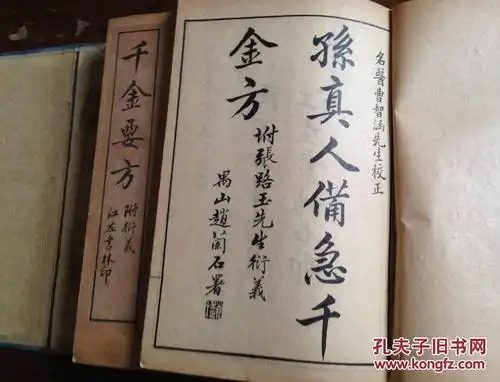 名醫曹智涵先生校正
孫真人備急千
金方
坿張路玉先生衍義
禺山趙蘭石署
千金要方
附衍義
江左書林印
孔夫子旧书网
www.kongfz.com